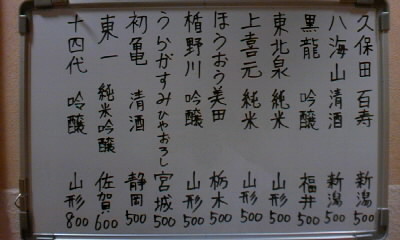 久保田 百寿 新潟 500
八海山 清酒 新潟 500
黒龍 吟醸 福井 500
東北泉 純米 山形 500
上喜元 純米 山形 500
ほうおう美田 栃木 500
楯野川 吟醸 山形 500
うらがすみひやおろし 宮城 500
初亀 清酒 静岡 500
東一 純米吟醸 佐賀 600
十四代 吟醸 山形 800